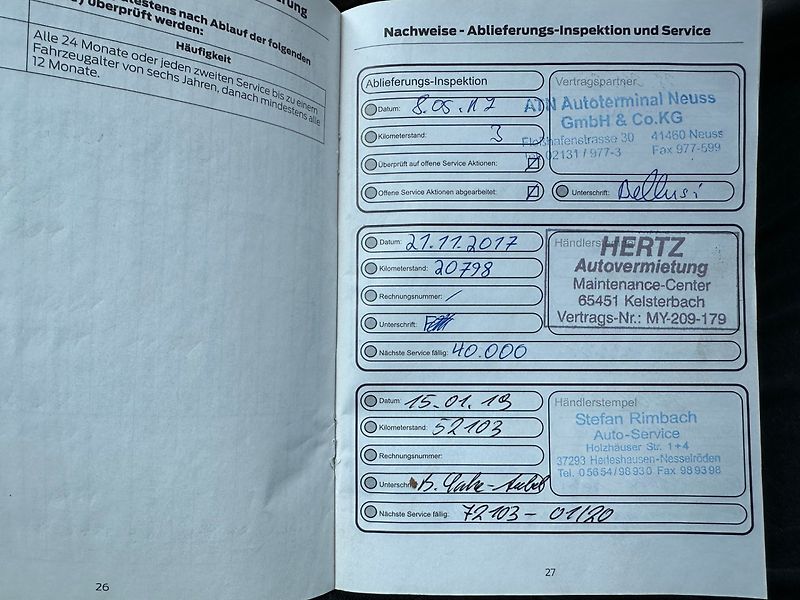 nach Ablauf der folgenden
überprüft werden:
Häufigkeit
Alle 24 Monate oder jeden zweiten Service bis zu einem
Fahrzeugalter von sechs Jahren, danach mindestens alle
12 Monate.
26
Nachweise - Ablieferungs-Inspektion und Service
Ablieferungs-Inspektion
Datum: 8.05.17
Kilometerstand: 3
Überprüft auf offene Service Aktionen:
Offene Service Aktionen abgearbeitet:
Vertragspartner
ATN Autoterminal Neuss
GmbH & Co.KG
Floßhafenstrasse 30 41460 Neuss
02131 / 977-3 Fax 977-599
Unterschrift:
Datum: 21.11.2017
Kilometerstand: 20798
Rechnungsnummer: /
Unterschrift:
Nächste Service fällig: 40.000
Händlerstempel
HERTZ
Autovermietung
Maintenance-Center
65451 Kelsterbach
Vertrags-Nr.: MY-209-179
Datum: 15.01.19
Kilometerstand: 52103
Rechnungsnummer:
Unterschrift:
Nächste Service fällig: 72103 - 01/20
Händlerstempel
Stefan Rimbach
Auto-Service
Holzhäuser Str. 1+4
37293 Herleshausen-Nesselröden
Tel. 05654/98930 Fax 989398
27